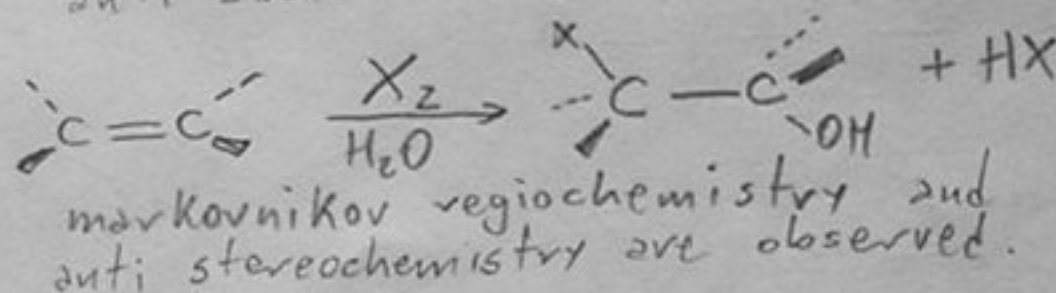 C=C X2 / H2O → X C — C OH + HX
markovnikov regiochemistry and
anti stereochemistry are observed.